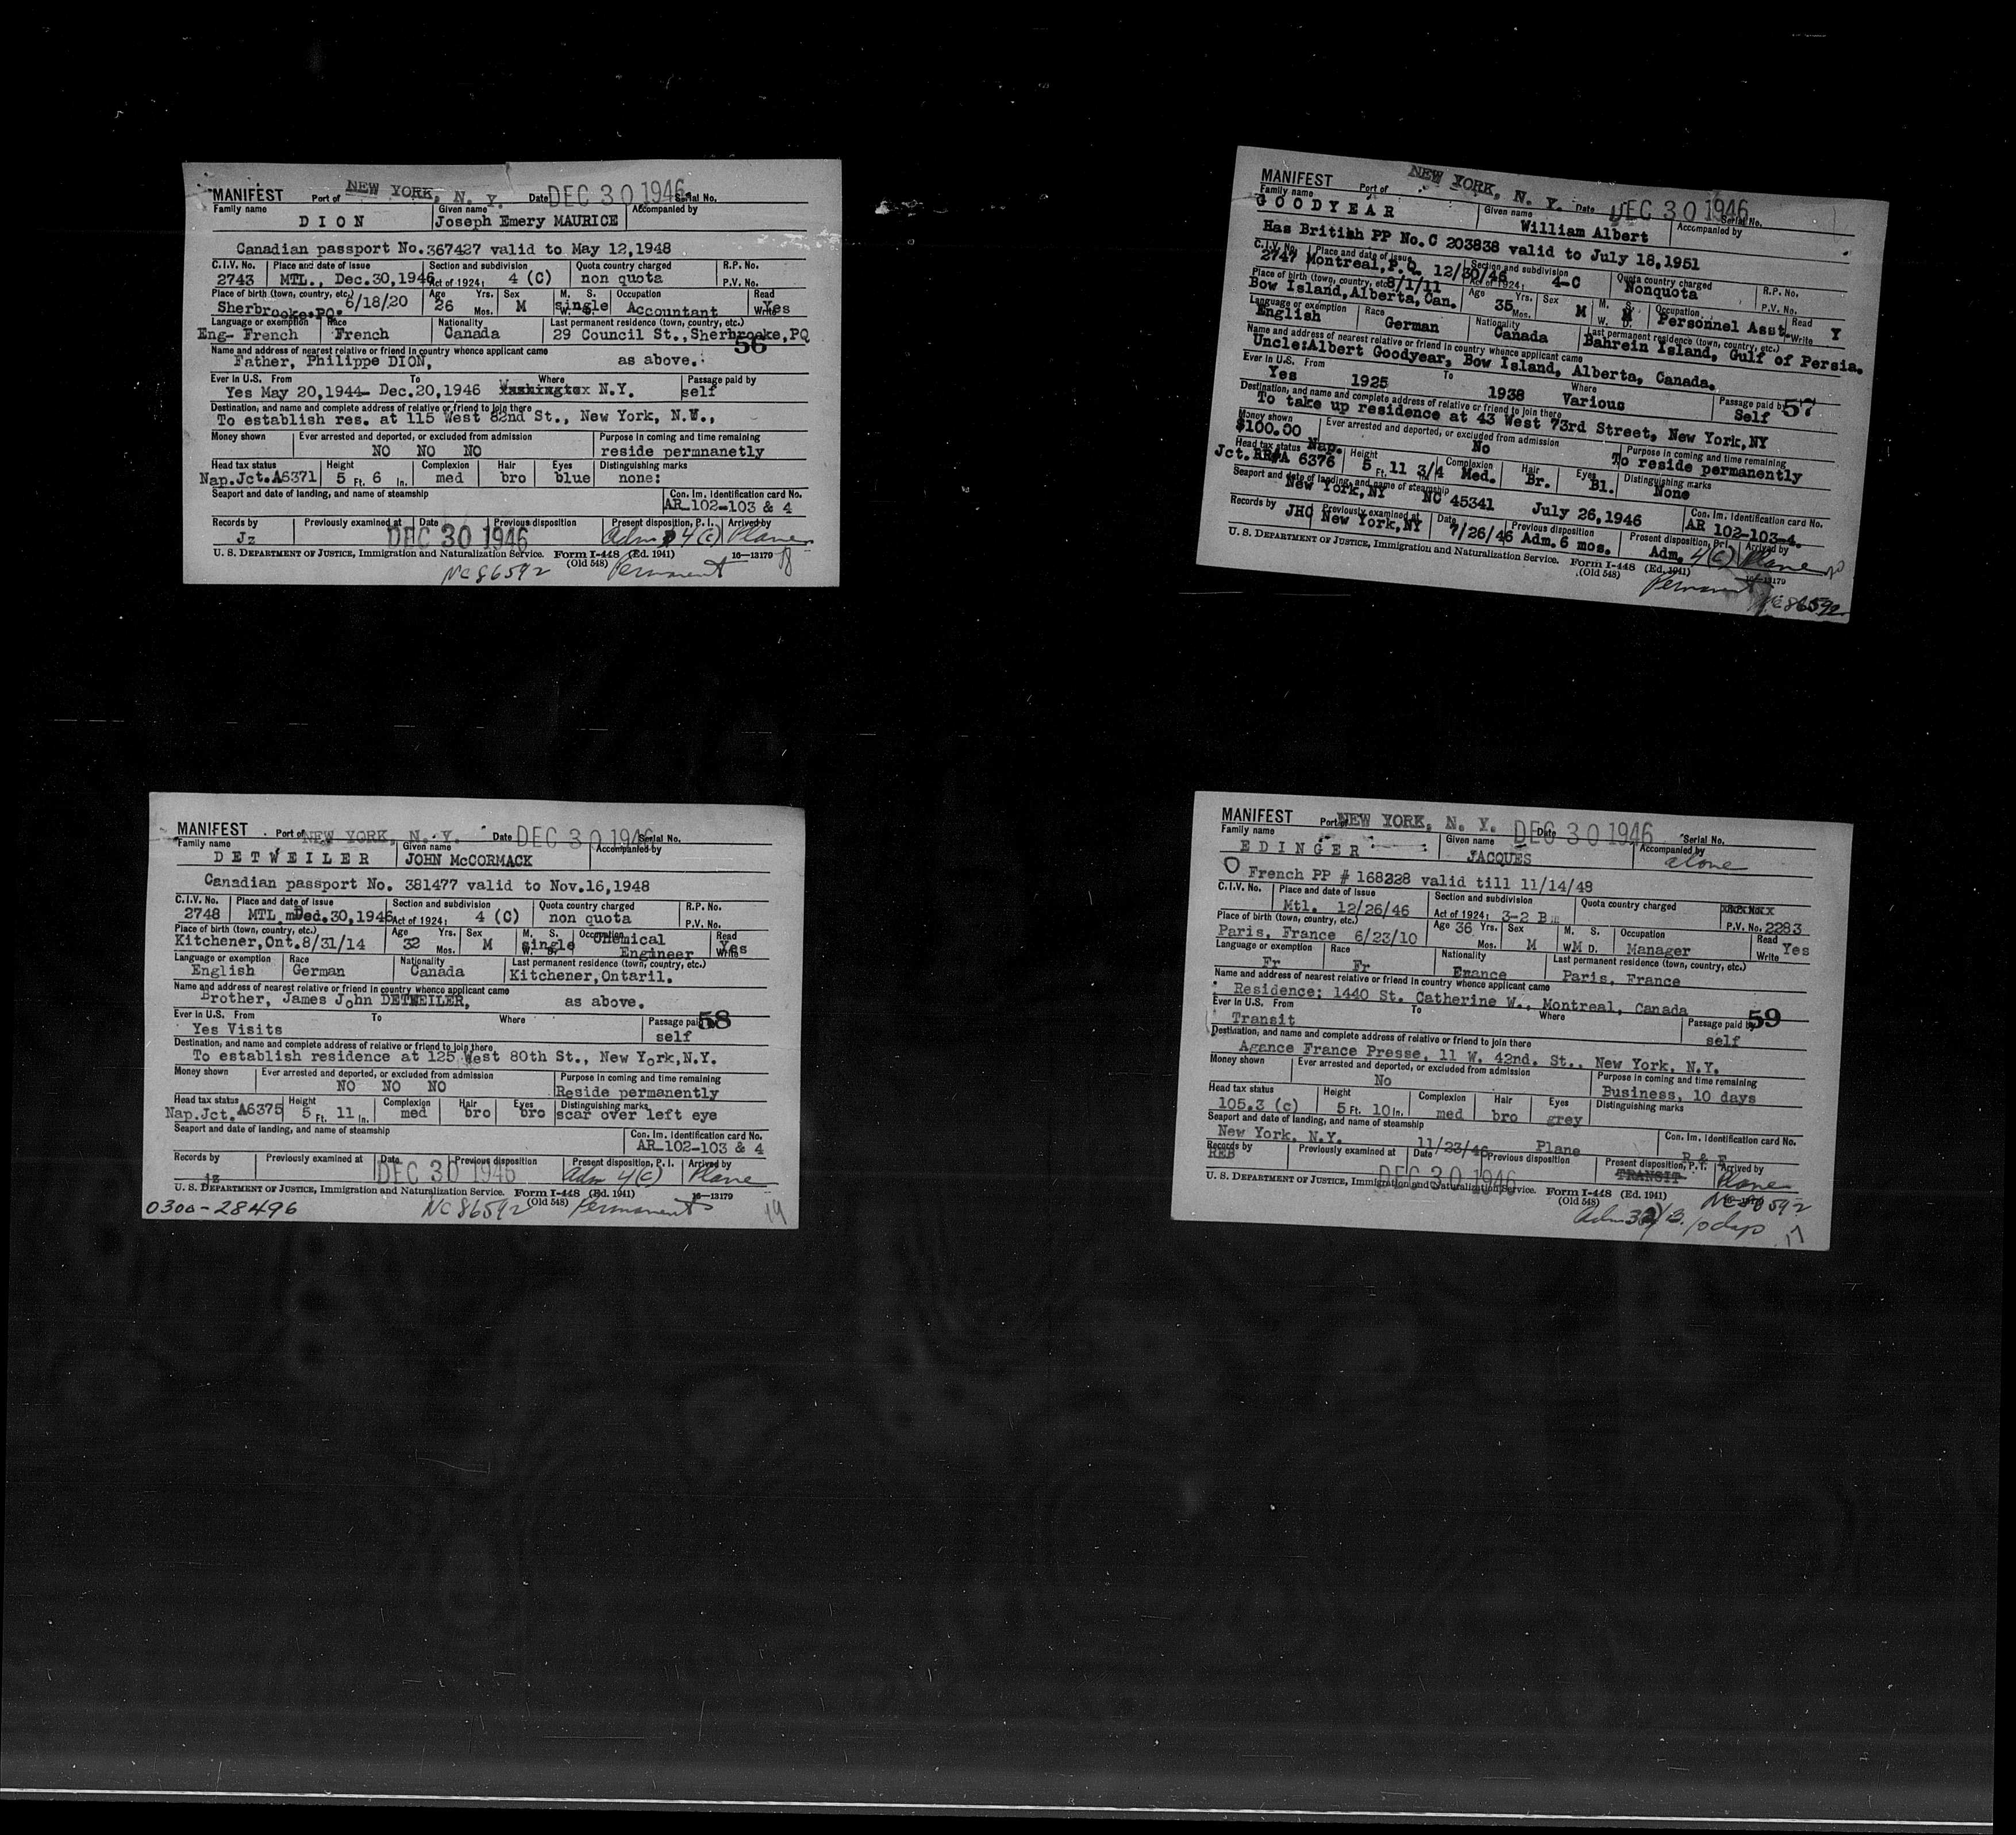 MANIFEST Port of NEW YORK, N. Y. Date DEC 30 1946 Serial No.
Family name Given name Accompanied by
D I O N Joseph Emery MAURICE
Canadian passport No.367427 valid to May 12,1948
C.I.V. No. Place and date of issue Section and subdivision Quota country charged R.P. No.
2743 MTL., Dec.30,1946 Act of 1924: 4 (C) non quota P.V. No.
Place of birth (town, country, etc.) Age Yrs. Sex M. S. Occupation Read
Sherbrooke,PQ. 6/18/20 26 Mos. M single W. D. Accountant Write Yes
Language or exemption Race Nationality Last permanent residence (town, country, etc.)
Eng- French French Canada 29 Council St.,Sherbrooke,PQ
56
Name and address of nearest relative or friend in country whence applicant came
Father, Philippe DION, as above.
Ever in U.S. From To Where Passage paid by
Yes May 20,1944- Dec.20,1946 Washingtox N.Y. self
Destination, and name and complete address of relative or friend to join there
To establish res. at 115 West 82nd St., New York, N.W.,
Money shown Ever arrested and deported, or excluded from admission Purpose in coming and time remaining
NO NO NO reside permnanetly
Head tax status Height Complexion Hair Eyes Distinguishing marks
Nap.Jct.A6371 5 Ft. 6 In. med bro blue none:
Seaport and date of landing, and name of steamship Con. Im. Identification card No.
AR 102-103 & 4
Records by Previously examined at Date Previous disposition Present disposition, P. I. Arrived by
Jz DEC 30 1946 Adm 4(c) Plane
U. S. DEPARTMENT OF JUSTICE, Immigration and Naturalization Service. Form I-448 (Ed. 1941) 16-13179
(Old 548)
NC 86592 Permanent 18
MANIFEST Port of NEW YORK, N. Y. Date DEC 30 1946 Serial No.
Family name Given name Accompanied by
G O O D Y E A R William Albert
Has British PP No.C 203838 valid to July 18,1951
C.I.V. No. Place and date of issue Section and subdivision Quota country charged R.P. No.
2747 Montreal,P.Q. 12/30/46 Act of 1924: 4-C Nonquota P.V. No.
Place of birth (town, country, etc.) 8/1/11 Age Yrs. Sex M. S. Occupation Read
Bow Island,Alberta,Can. 35 Mos. M W. D. Personnel Asst. Write Y
Language or exemption Race Nationality Last permanent residence (town, country, etc.)
English German Canada Bahrein Island, Gulf of Persia.
Name and address of nearest relative or friend in country whence applicant came
Uncle:Albert Goodyear, Bow Island, Alberta, Canada.
Ever in U.S. From To Where Passage paid by 57
Yes 1925 1938 Various Self
Destination, and name and complete address of relative or friend to join there
To take up residence at 43 West 73rd Street, New York,NY
Money shown Ever arrested and deported, or excluded from admission Purpose in coming and time remaining
$100.00 No To reside permanently
Head tax status Nap. Height Complexion Hair Eyes Distinguishing marks
Jct. A 6376 5 Ft. 11 3/4 Med. Br. Bl. None
Seaport and date of landing, and name of steamship Con. Im. Identification card No.
New York,NY NC 45341 July 26,1946 AR 102-103-4.
Records by Previously examined at Date Previous disposition Present disposition, P. I. Arrived by
JHC New York,NY 7/26/46 Adm.6 mos. Adm. 4(c) Plane
U. S. DEPARTMENT OF JUSTICE, Immigration and Naturalization Service. Form I-448 (Ed. 1941) 16-13179
(Old 548)
Permanent NC 86592
MANIFEST Port of NEW YORK, N. Y. Date DEC 30 1946 Serial No.
Family name Given name Accompanied by
D E T W E I L E R JOHN McCORMACK
Canadian passport No. 381477 valid to Nov.16,1948
C.I.V. No. Place and date of issue Section and subdivision Quota country charged R.P. No.
2748 MTL Ded.30,1946 Act of 1924: 4 (C) non quota P.V. No.
Place of birth (town, country, etc.) Age Yrs. Sex M. S. Occupation Chemical Read
Kitchener,Ont.8/31/14 32 Mos. M single W. D. Engineer Write Yes
Language or exemption Race Nationality Last permanent residence (town, country, etc.)
English German Canada Kitchener,Ontaril.
Name and address of nearest relative or friend in country whence applicant came
Brother, James John DETWEILER, as above.
Ever in U.S. From To Where Passage paid by 58
Yes Visits self
Destination, and name and complete address of relative or friend to join there
To establish residence at 125 West 80th St., New York,N.Y.
Money shown Ever arrested and deported, or excluded from admission Purpose in coming and time remaining
NO NO NO Reside permanently
Head tax status Height Complexion Hair Eyes Distinguishing marks
Nap.Jct.A6375 5 Ft. 11 In. med bro bro scar over left eye
Seaport and date of landing, and name of steamship Con. Im. Identification card No.
AR 102-103 & 4
Records by Previously examined at Date Previous disposition Present disposition, P. I. Arrived by
jz DEC 30 1946 Adm 4(c) Plane
U. S. DEPARTMENT OF JUSTICE, Immigration and Naturalization Service. Form I-448 (Ed. 1941) 16-13179
(Old 548)
0300-28496 NC 86592 Permanent 19
MANIFEST Port of NEW YORK, N. Y. Date DEC 30 1946 Serial No.
Family name Given name Accompanied by
E D I N G E R JACQUES alone
French PP # 168228 valid till 11/14/48
C.I.V. No. Place and date of issue Section and subdivision Quota country charged
Mtl. 12/26/46 Act of 1924: 3-2 B P.V. No. 2283
Place of birth (town, country, etc.) Age Yrs. Sex M. S. Occupation Read
Paris, France 6/23/10 36 Mos. M W M D. Manager Write Yes
Language or exemption Race Nationality Last permanent residence (town, country, etc.)
Fr Fr France Paris, France
Name and address of nearest relative or friend in country whence applicant came
Residence: 1440 St. Catherine W., Montreal, Canada
Ever in U.S. From To Where Passage paid by 59
Transit self
Destination, and name and complete address of relative or friend to join there
Agance France Presse, 11 W. 42nd. St., New York, N.Y.
Money shown Ever arrested and deported, or excluded from admission Purpose in coming and time remaining
No Business, 10 days
Head tax status Height Complexion Hair Eyes Distinguishing marks
105.3 (c) 5 Ft. 10 In. med bro grey
Seaport and date of landing, and name of steamship Con. Im. Identification card No.
New York, N.Y. 11/23/46 Plane R & F
Records by Previously examined at Date Previous disposition Present disposition, P.I. Arrived by
REB DEC 30 1946 TRANSIT Plane
U. S. DEPARTMENT OF JUSTICE, Immigration and Naturalization Service. Form I-448 (Ed. 1941)
(Old 548) NC 86592
Adm 3(2)B 10 days 17